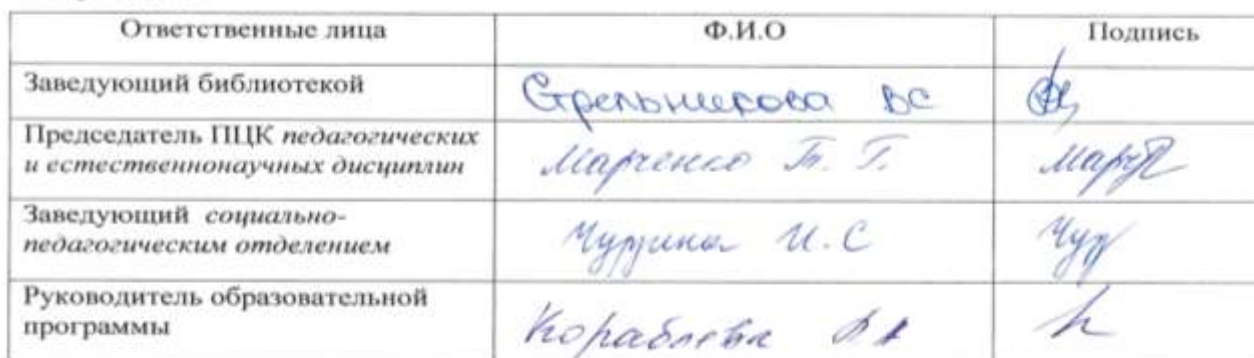 Ответственные лица Ф.И.О Подпись
Заведующий библиотекой Стрельникова ВС
Председатель ПЦК педагогических
и естественнонаучных дисциплин Марченко Т. Г.
Заведующий социально-
педагогическим отделением И.С
Руководитель образовательной
программы Кораблева